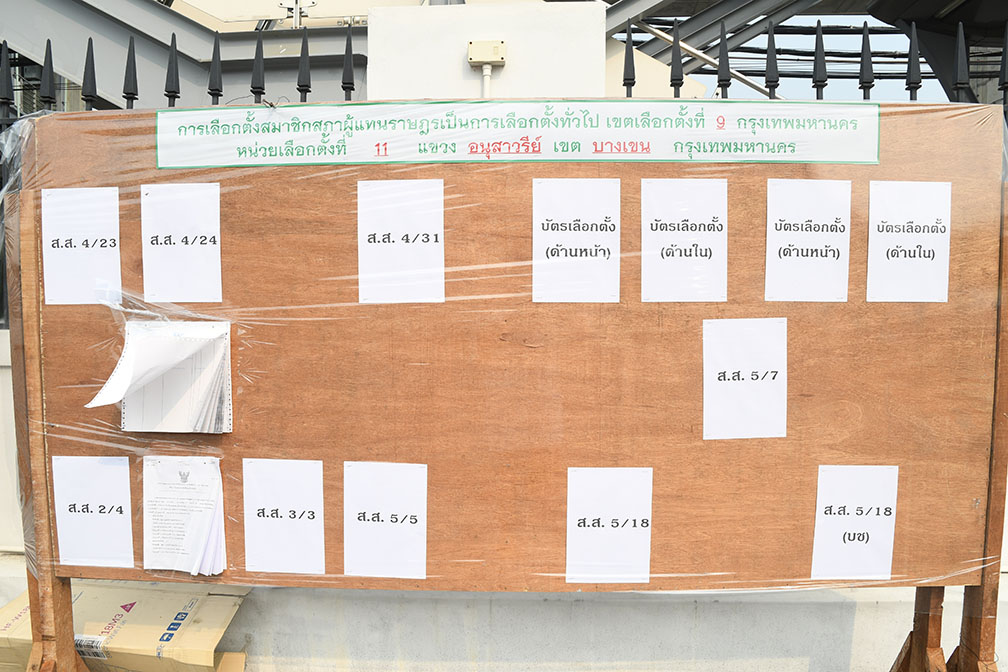 การเลือกตั้งสมาชิกสภาผู้แทนราษฎรเป็นการเลือกตั้งทั่วไป เขตเลือกตั้งที่ 9 กรุงเทพมหานคร
หน่วยเลือกตั้งที่ 11 แขวง อนุสาวรีย์ เขต บางเขน กรุงเทพมหานคร
ส.ส. 4/23
ส.ส. 4/24
ส.ส. 4/31
บัตรเลือกตั้ง
(ด้านหน้า)
บัตรเลือกตั้ง
(ด้านใน)
บัตรเลือกตั้ง
(ด้านหน้า)
บัตรเลือกตั้ง
(ด้านใน)
ส.ส. 5/7
ส.ส. 2/4
ส.ส. 3/3
ส.ส. 5/5
ส.ส. 5/18
ส.ส. 5/18
(บช)
18M3